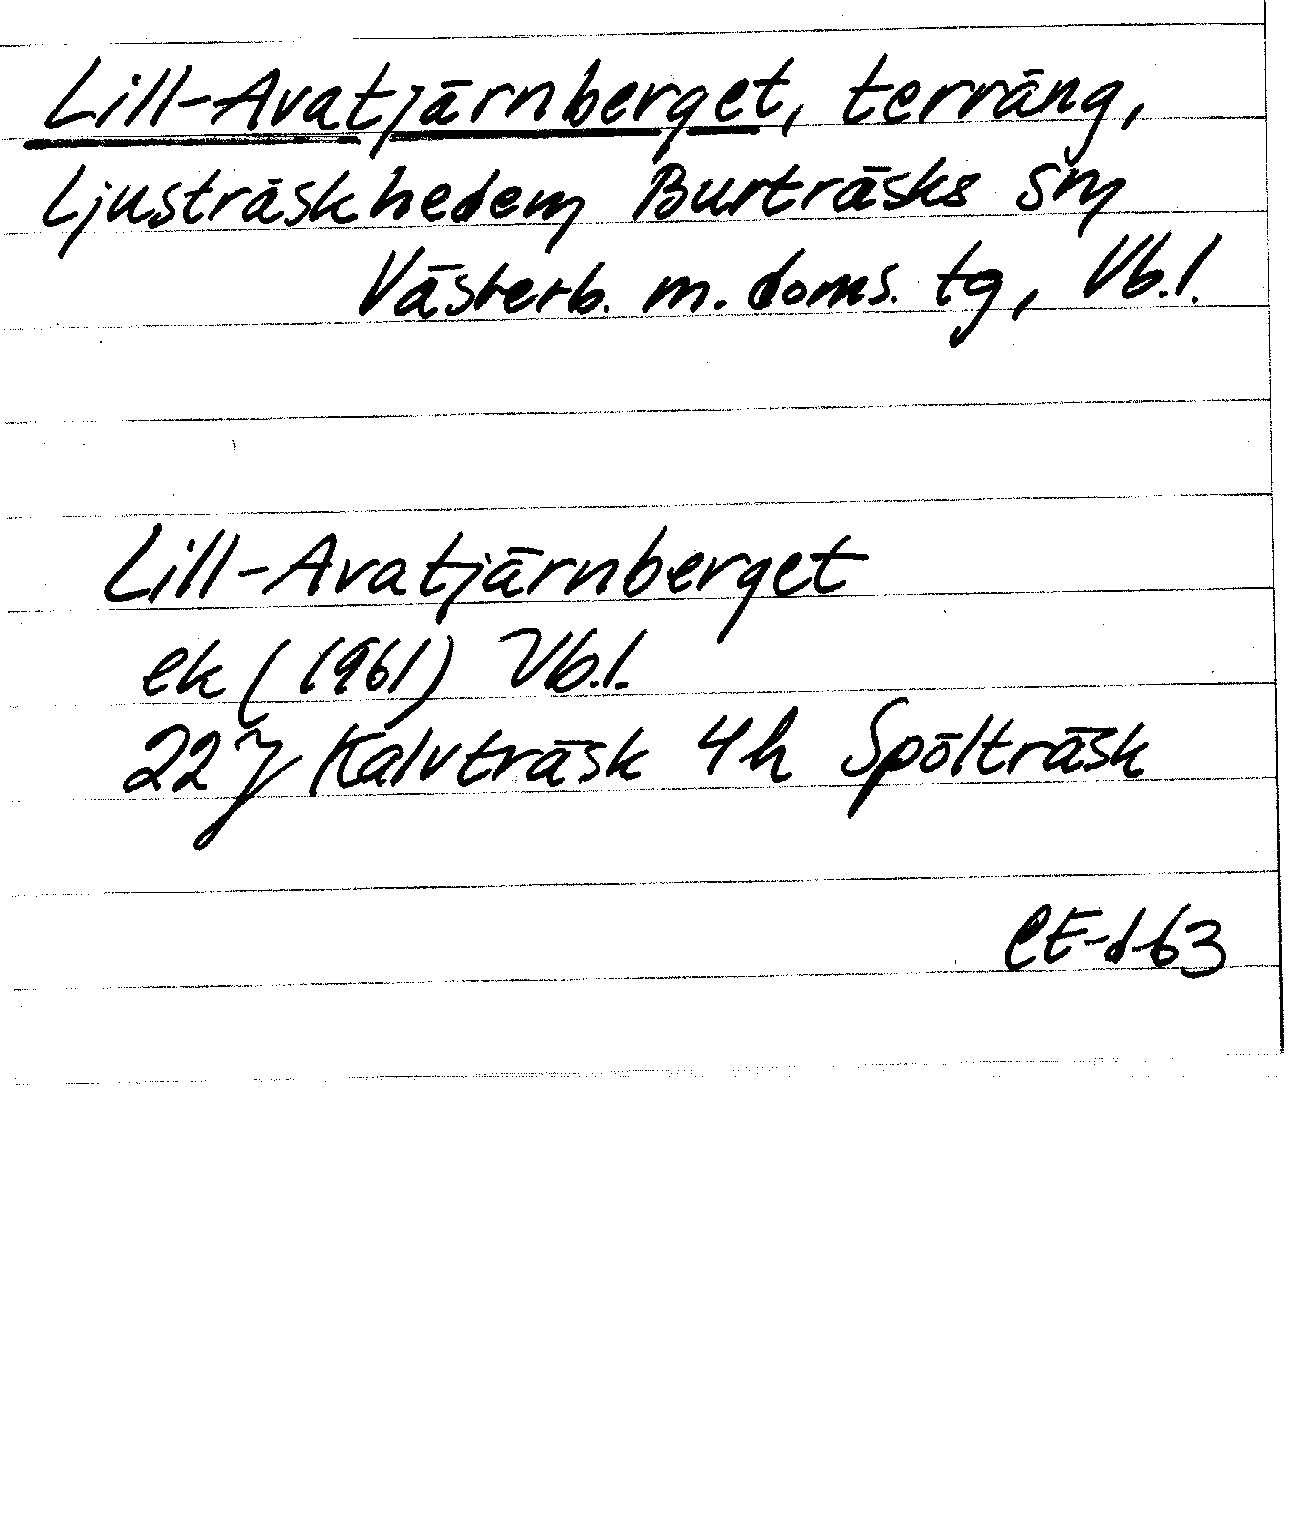 Lill-Avatjärnberget, terräng,
Ljusträskhedem Burträsks sn
Västerb. m. doms. tg, Vb.l.
Lill-Avatjärnberget
ek (1961) Vb.l.
22J Kalvträsk 4h Spölträsk
CE-d-63